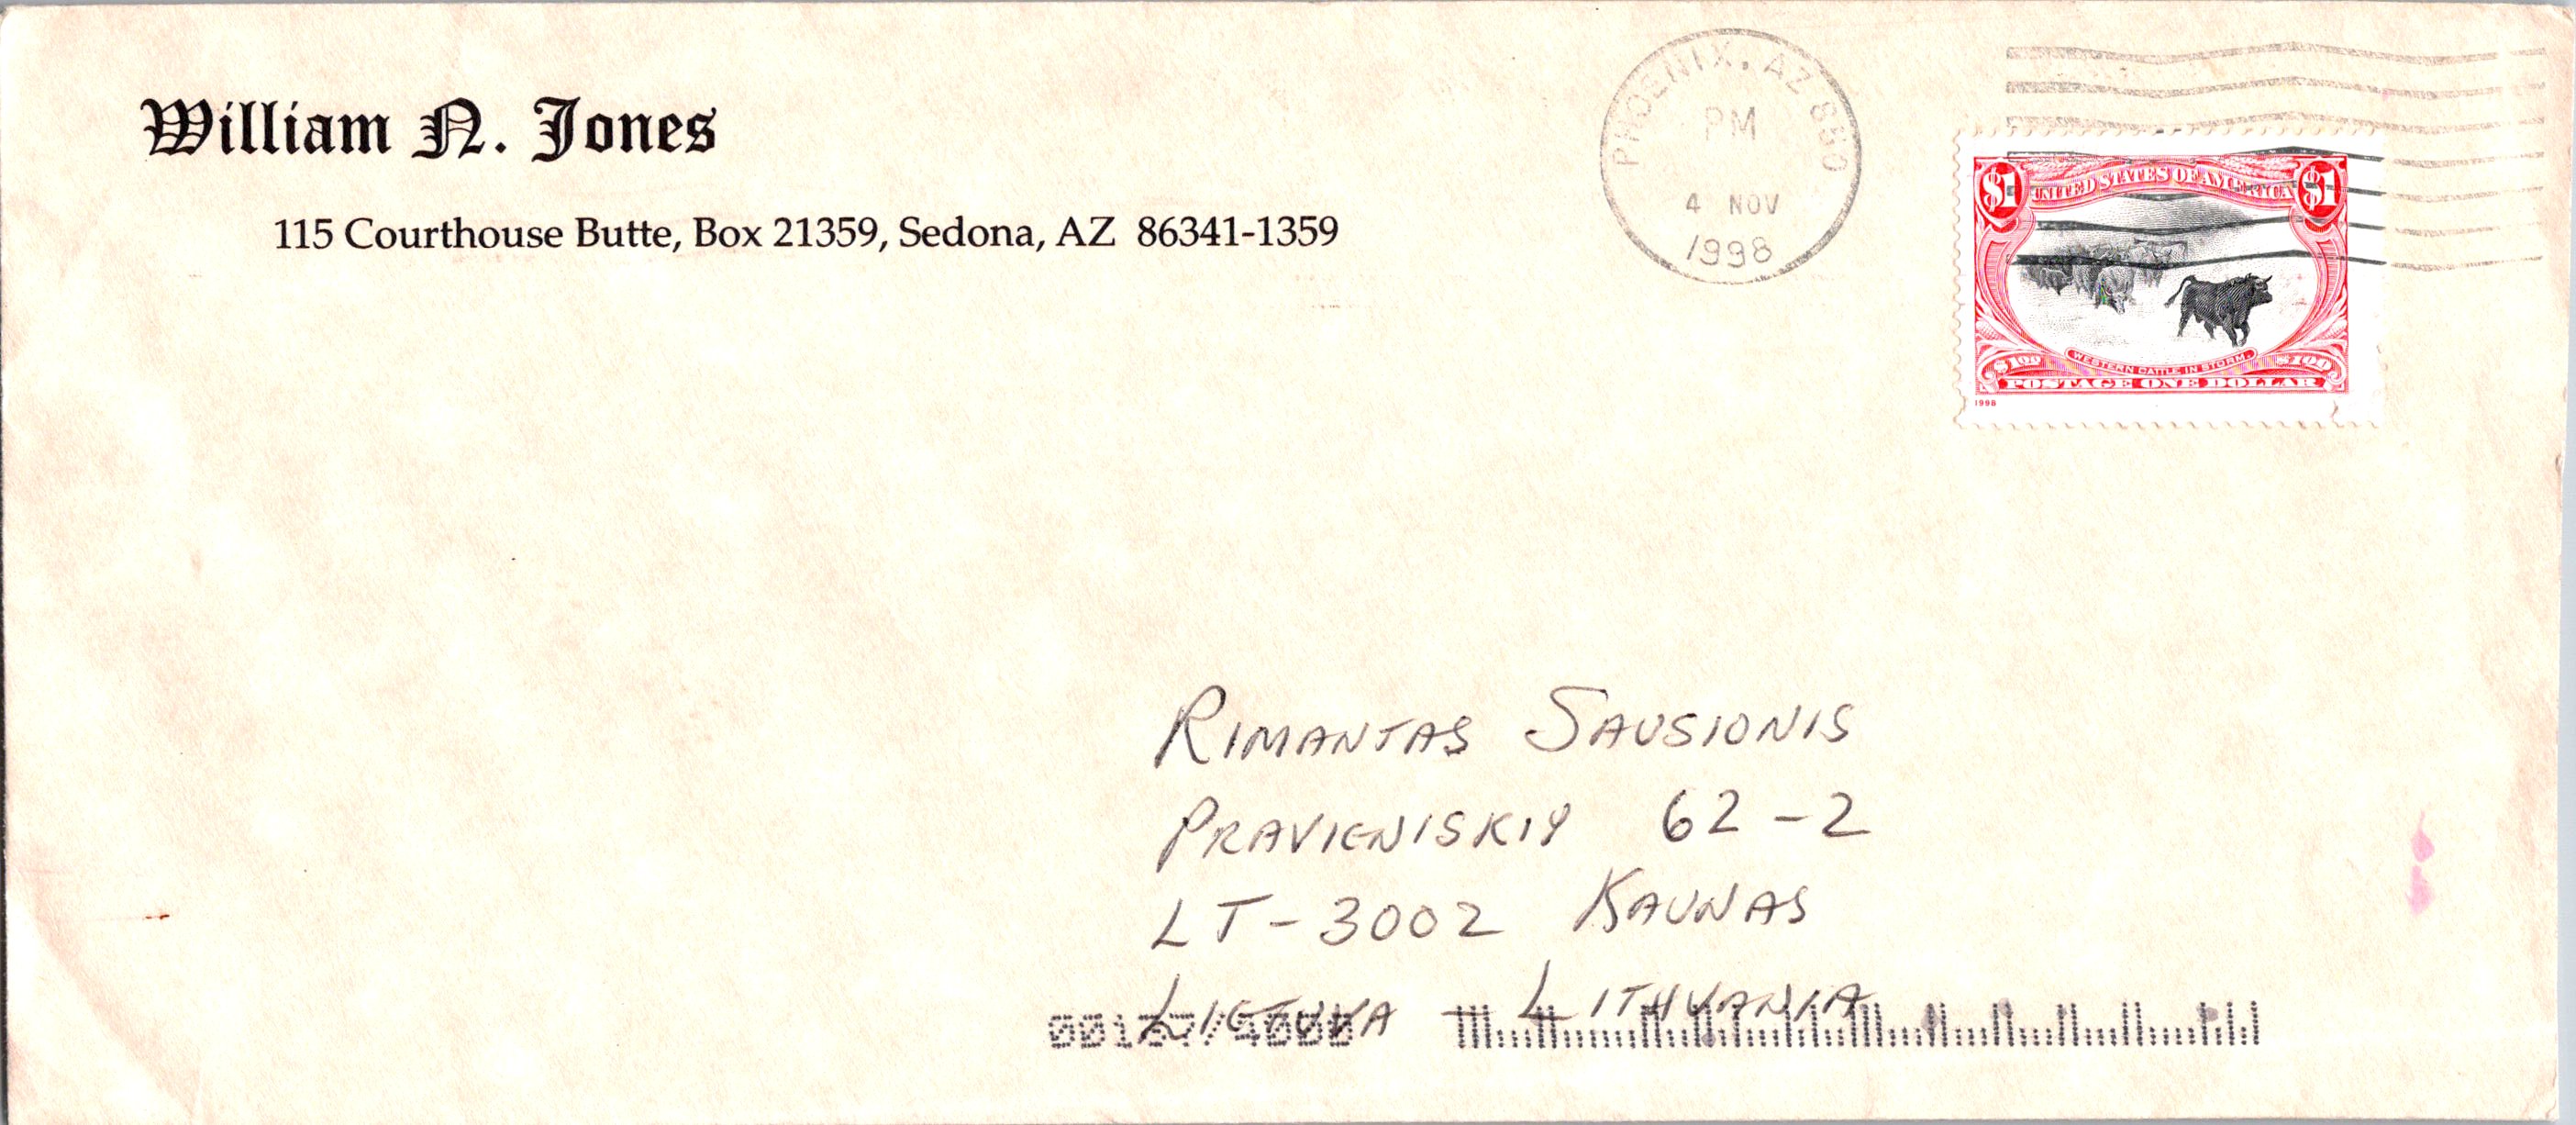 William N. Jones
115 Courthouse Butte, Box 21359, Sedona, AZ 86341-1359
PHOENIX, AZ 850
PM
4 NOV
1998
$1 UNITED STATES OF AMERICA $1
WESTERN CATTLE IN STORM.
$100 $100
POSTAGE ONE DOLLAR
1998
RIMANTAS SAUSIONIS
PRAVIENISKIY 62-2
LT-3002 KAUNAS
LIETUVA - LITHUANIA